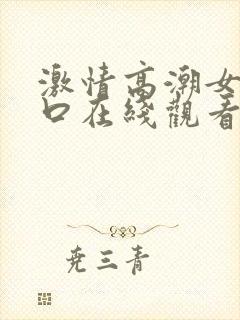 激情高潮女
口在綫觀看
尧三青